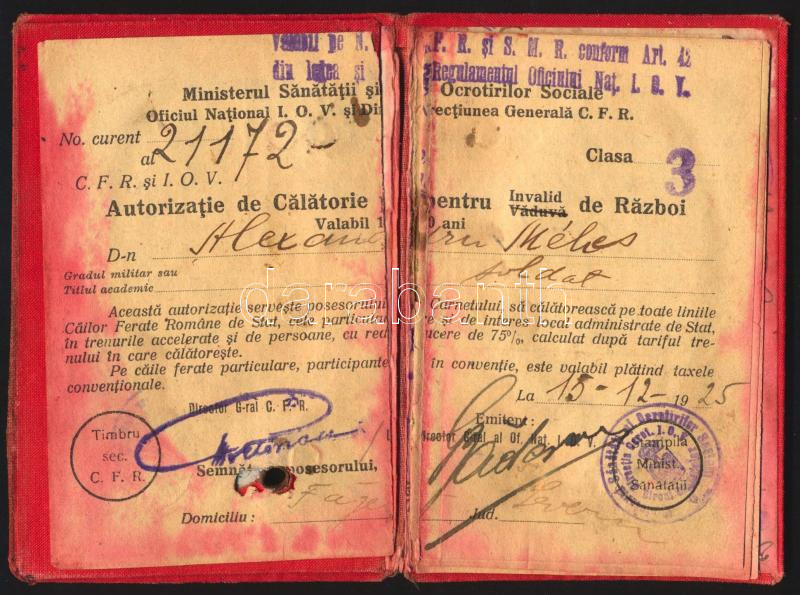 Valabil pe N. C. F. R. și S. M. R. conform Art. 42
din legea și Regulamentul Oficiului Naț. I. O. V.
Ministerul Sănătății și Ocrotirilor Sociale
Oficiul Național I. O. V. și Direcțiunea Generală C. F. R.
No. curent 21172-
al
C. F. R. și I. O. V.
Clasa 3
Autorizație de Călătorie pentru Invalid Văduvă de Război
Valabil 10 ani
D-n Alexandru Méhes
Gradul militar sau
Titlul academic soldat
Această autorizație servește posesorului Carnetului, să călătorească pe toate liniile
Căilor Ferate Române de Stat, cele particulare și de interes local administrate de Stat,
în trenurile accelerate și de persoane, cu reducere de 75%, calculat după tariful tre-
nului în care călătorește.
Pe căile ferate particulare, participante în convenție, este valabil plătind taxele
convenționale.
La 15-12-1925
Director G-ral C. F. R.
Emitent:
Director Gral al Of. Naț. I. O. V.
Timbru
sec.
C. F. R.
Ștampila
Minist.
Sănătății
Semnătura posesorului,
Domiciliu:
Jud. Severin
darabanth